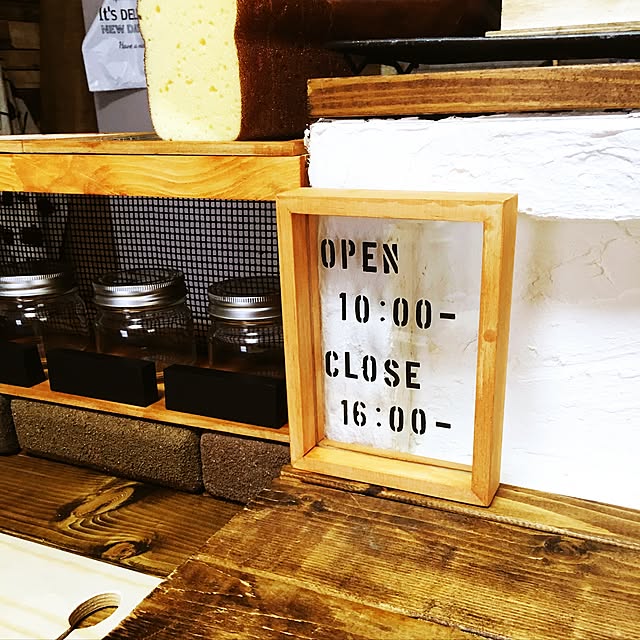 It's DEL
NEW DA
Have a
OPEN
10:00-
CLOSE
16:00-